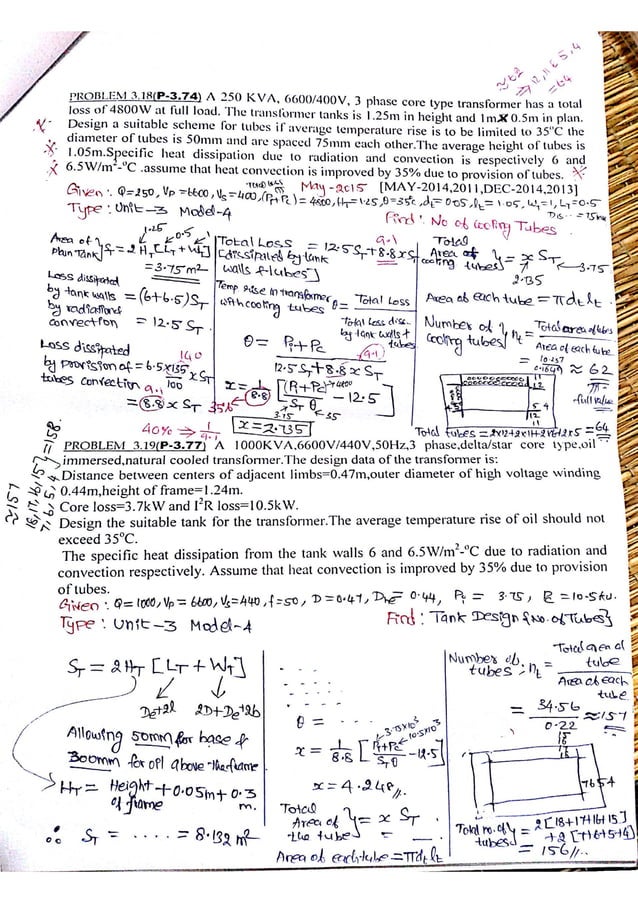 ≈62
⇒ 12,11 & 5,4
=64
PROBLEM 3.18(P-3.74) A 250 KVA, 6600/400V, 3 phase core type transformer has a total
loss of 4800W at full load. The transformer tanks is 1.25m in height and 1m X 0.5m in plan.
Design a suitable scheme for tubes if average temperature rise is to be limited to 35°C the
diameter of tubes is 50mm and are spaced 75mm each other.The average height of tubes is
1.05m.Specific heat dissipation due to radiation and convection is respectively 6 and
6.5W/m²-°C .assume that heat convection is improved by 35% due to provision of tubes.
May-2015 [MAY-2014,2011,DEC-2014,2013]
Given: Q=250, Vp=6600, Vs=400, (Pi+Pc)=4800, HT=1.25, θ=35c, dt=0.05, lt=1.05, WT=1, LT=0.5
Total loss
Dis-- = 75mm
Type: Unit-3 Model-4
Find: No of Cooling Tubes
Area of Plain Tank } ST = 2HT [LT+WT]
1.25 0.5 1
= 3.75 m²
Loss dissipated by tank walls by radiation & convection = (6+6.5) ST
= 12.5 ST
Loss dissipated by provision of tubes convection = 6.5 × 135/100 × ST
140
9.1
= 8.8 × ST 35%
40% → 1/9.1
Total Loss [dissipated by tank walls & tubes] = 12.5 ST + 8.8 x ST
9.1
Temp rise in transformer with cooling tubes θ = Total Loss / Total Loss diss. by tank walls & tubes
θ = Pi+Pc / 12.5 ST + 8.8 x ST
9.1
x = 1/8.8 [(Pi+Pc)/(ST θ) - 12.5]
4800
3.75 35
x = 2.735
Total Area of cooling tubes } = x ST
2.735 3.75
Area of each tube = πdt lt
Number of cooling tubes } nt = Total area of tubes / Area of each tube
10.257 / 0.1649 ≈ 62
full value
12 11
5 4
12 11
Total tubes = 2×12+2×11+2×4+2×5 = 64
PROBLEM 3.19(P-3.77) A 1000KVA,6600V/440V,50Hz,3 phase,delta/star core type,oil
immersed,natural cooled transformer.The design data of the transformer is:
Distance between centers of adjacent limbs=0.47m,outer diameter of high voltage winding
0.44m,height of frame=1.24m.
Core loss=3.7kW and I²R loss=10.5kW.
Design the suitable tank for the transformer.The average temperature rise of oil should not
exceed 35°C.
The specific heat dissipation from the tank walls 6 and 6.5W/m²-°C due to radiation and
convection respectively. Assume that heat convection is improved by 35% due to provision
of tubes.
≈157
18,17,16,15 } = 158
7,6,5,4
Given: Q=1000, Vp=6600, Vs=440, f=50, D=0.47, De=0.44, Pi = 3.75, Pc = 10.5kw.
Type: Unit-3 Model-4
Find: Tank Design {No. of Tubes}
ST = 2HT [LT + WT]
De+2l 2D+De+2b
Allowing 50mm for base &
300mm for oil above the frame
HT = Height of frame + 0.05m + 0.3 m.
∴ ST = ..... = 8.132 m²
θ = - - - -
x = 1/8.8 [(Pi+Pc)/(ST θ) - 12.5]
3.75×10³ 10.5×10³
x = 4.248 //.
Total Area of the tubes } = x ST = ---
Area of each tube = πdt lt
Number of tubes, nt = Total area of tube / Area of each tube
= 34.56 / 0.22 ≈ 157
18 17 16 15
7 6 5 4
Total no. of tubes } = 2[18+17+16+15] + 2[7+6+5+4]
= 156 //.